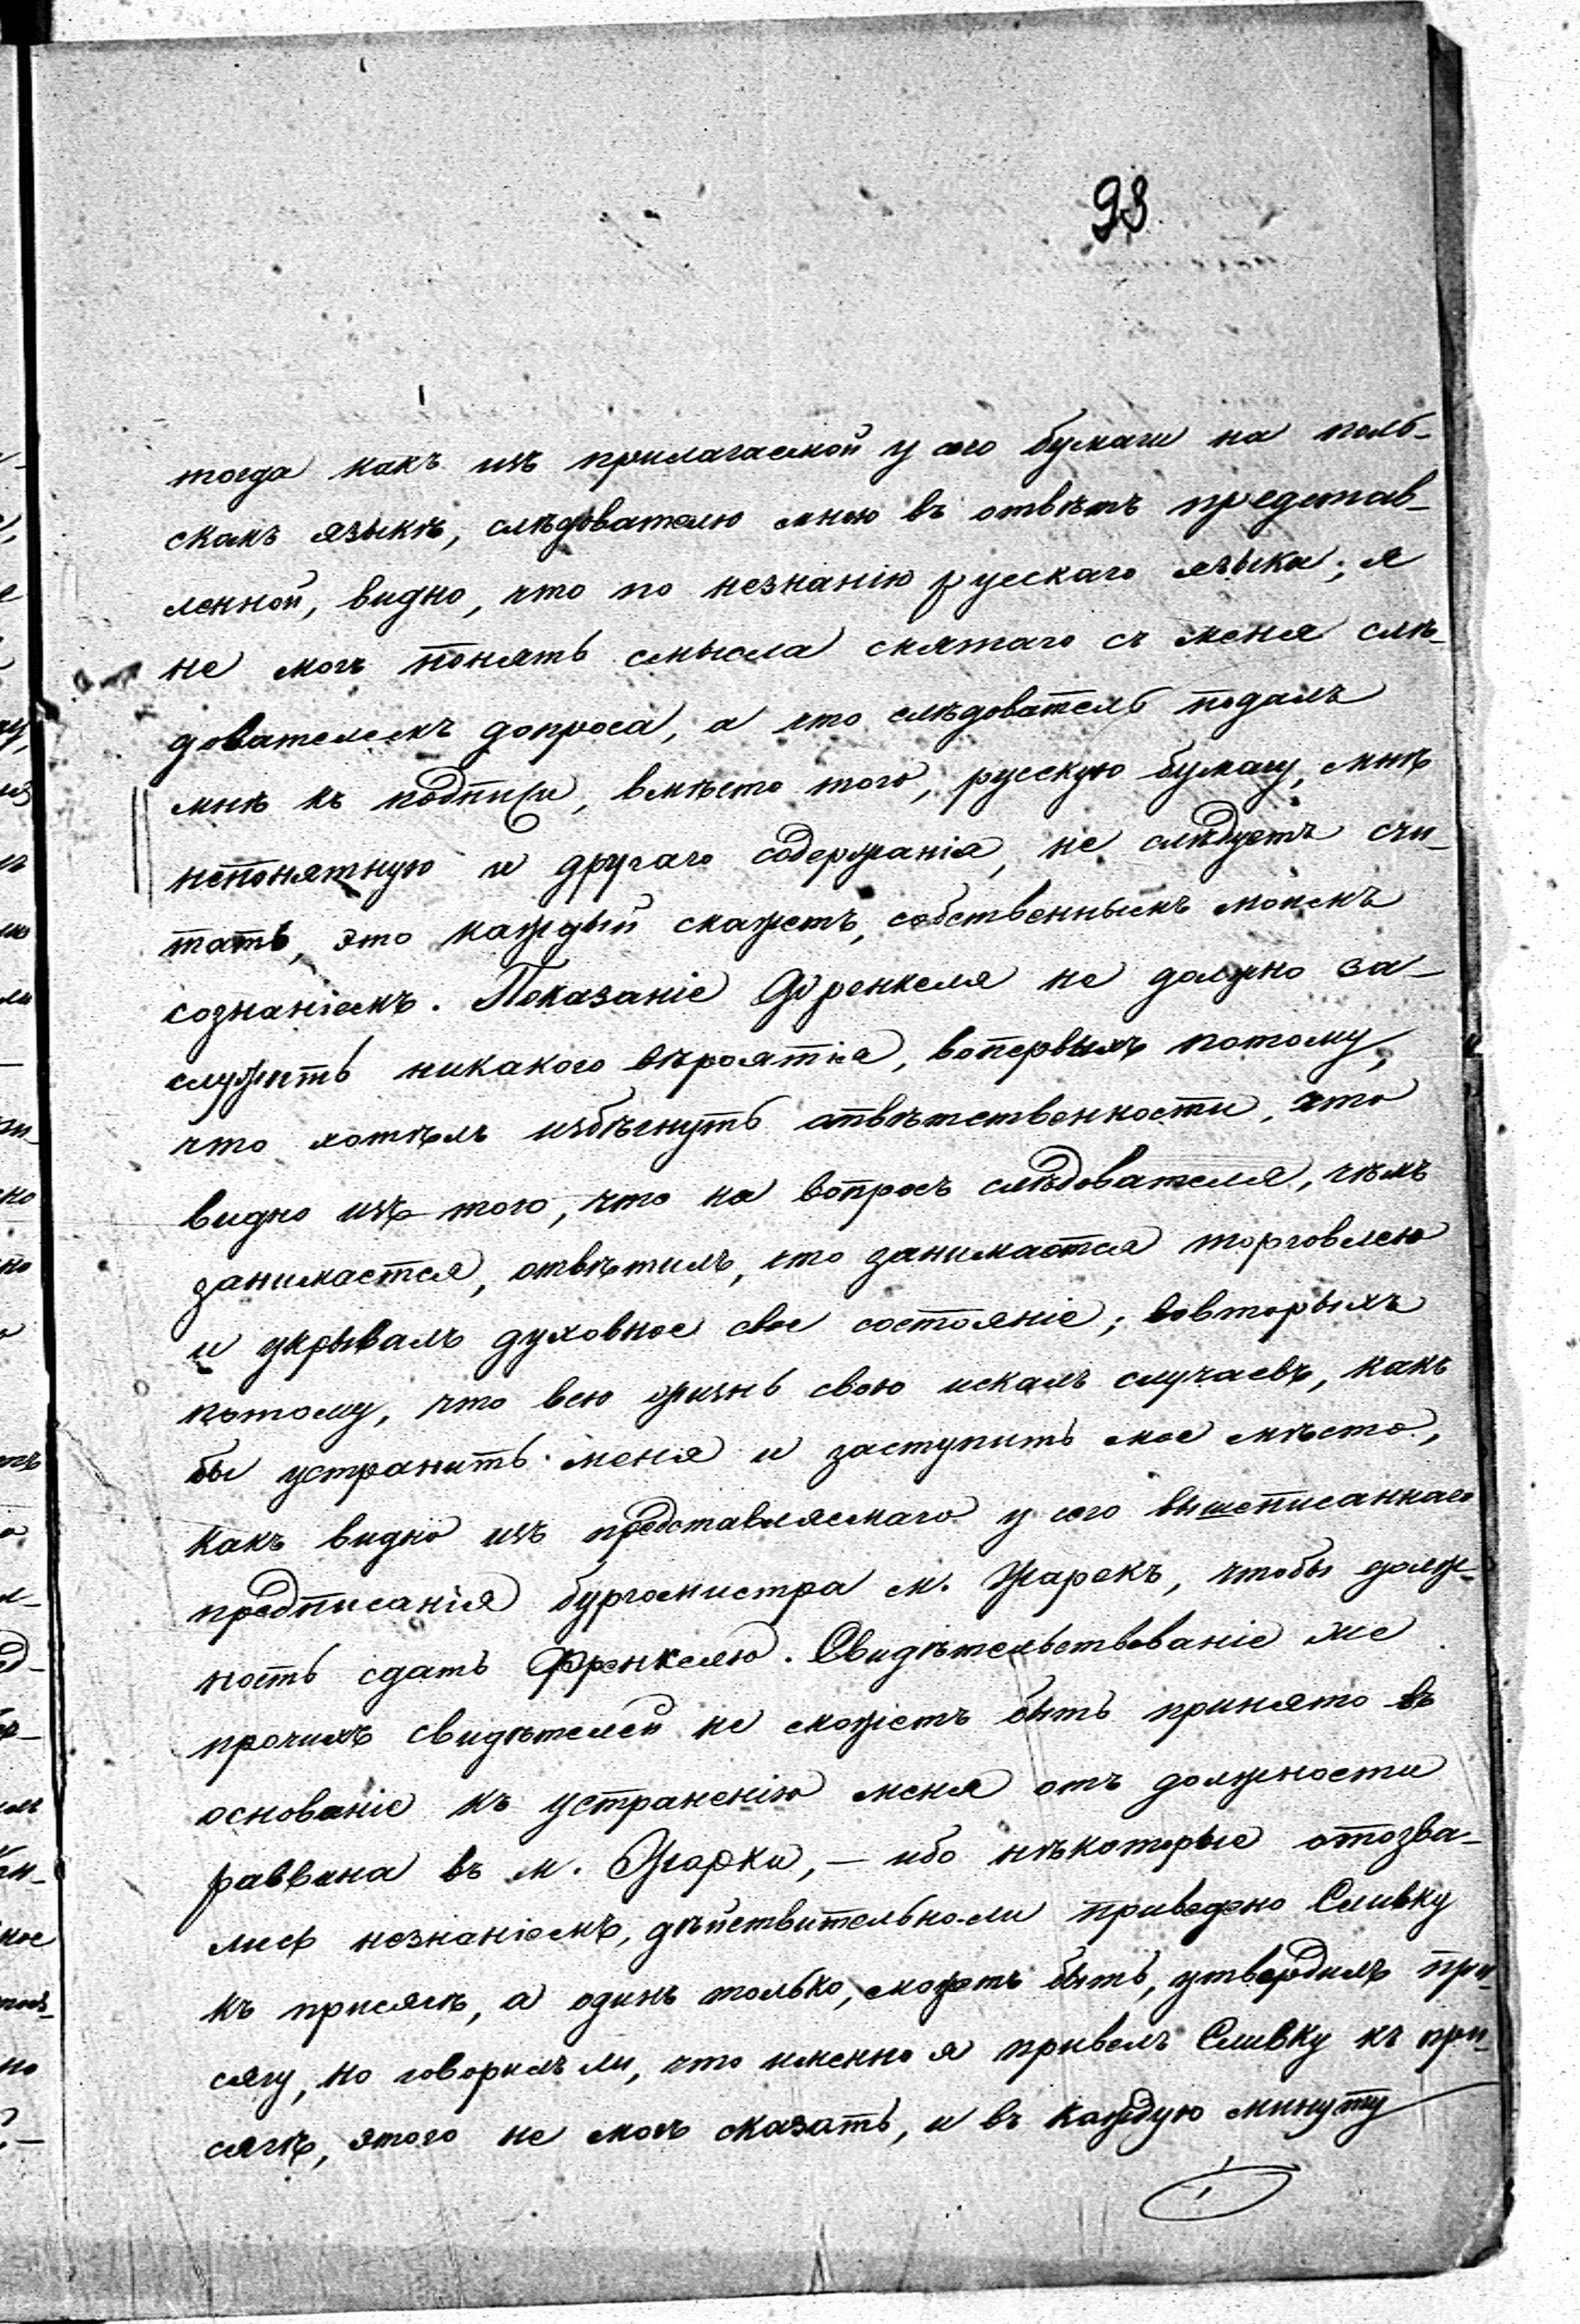 93
тогда какъ изъ прилагаемой у сего бумаги на поль-
скомъ языкѣ, слѣдователю мною въ отвѣтъ представ-
ленной, видно, что по незнанію русскаго языка, я
не могъ понять смысла снятаго съ меня слѣ-
дователемъ допроса, а что слѣдователь подалъ
мнѣ къ подписи, вмѣсто того, русскую бумагу, мнѣ
непонятную и другаго содержанія, не слѣдуетъ счи-
тать, это каждый скажетъ, собственнымъ моимъ
сознаніемъ. Показаніе Френкеля не должно за-
служить никакого вѣроятія, вопервыхъ потому,
что хотѣлъ избѣгнуть отвѣтственности, это
видно изъ того, что на вопросъ слѣдователя, чѣмъ
занимается, отвѣтилъ, что занимается торговлею
и укрывалъ духовное свое состояніе; вовторыхъ
потому, что всю жизнь свою искалъ случаевъ, какъ
бы устранить меня и заступить мое мѣсто,
какъ видно изъ представляемаго у сего вышеписаннаго
предписанія бургомистра м. Жарекъ, чтобы долж-
ность сдать Френкелю. Свидѣтельствованіе же
прочихъ свидѣтелей не можетъ быть принято въ
основаніе къ устраненію меня отъ должности
раввина въ м. Жарки, — ибо нѣкоторые отозва-
лись незнаніемъ, дѣйствительно-ли приведено Сливку
къ присягѣ, а одинъ только, можетъ быть, утвердилъ при-
сягу, но говорилъ ли, что именно я привелъ Сливку къ при-
сягѣ, этого не могъ сказать, и въ каждую минуту